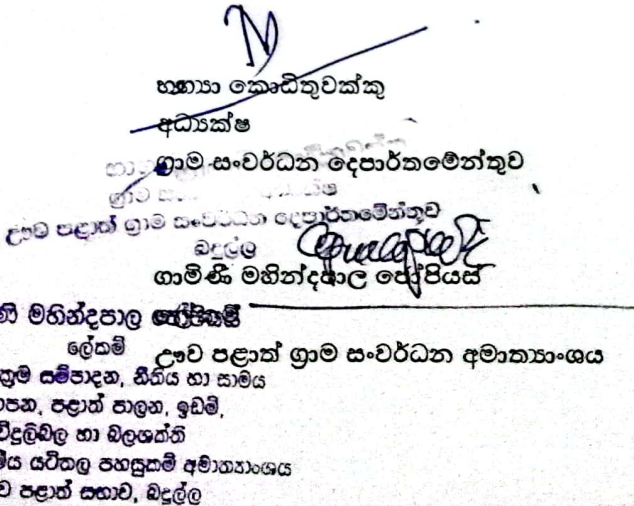 භාග්‍යා කොඩිතුවක්කු
අධ්‍යක්ෂ
ග්‍රාම සංවර්ධන දෙපාර්තමේන්තුව
ග්‍රාම
ඌව පළාත් ග්‍රාම සංවර්ධන දෙපාර්තමේන්තුව
බදුල්ල
ගාමිණී මහින්දපාල ජෝපියස්
ණි මහින්දපාල
ලේකම්
ඌව පළාත් ග්‍රාම සංවර්ධන අමාත්‍යාංශය
ක්‍රම සම්පාදන, නීතිය හා සාමය
පන, පළාත් පාලන, ඉඩම්,
විදුලිබල හා බලශක්ති
ීය යටිතල පහසුකම් අමාත්‍යාංශය
ව පළාත් සභාව, බදුල්ල